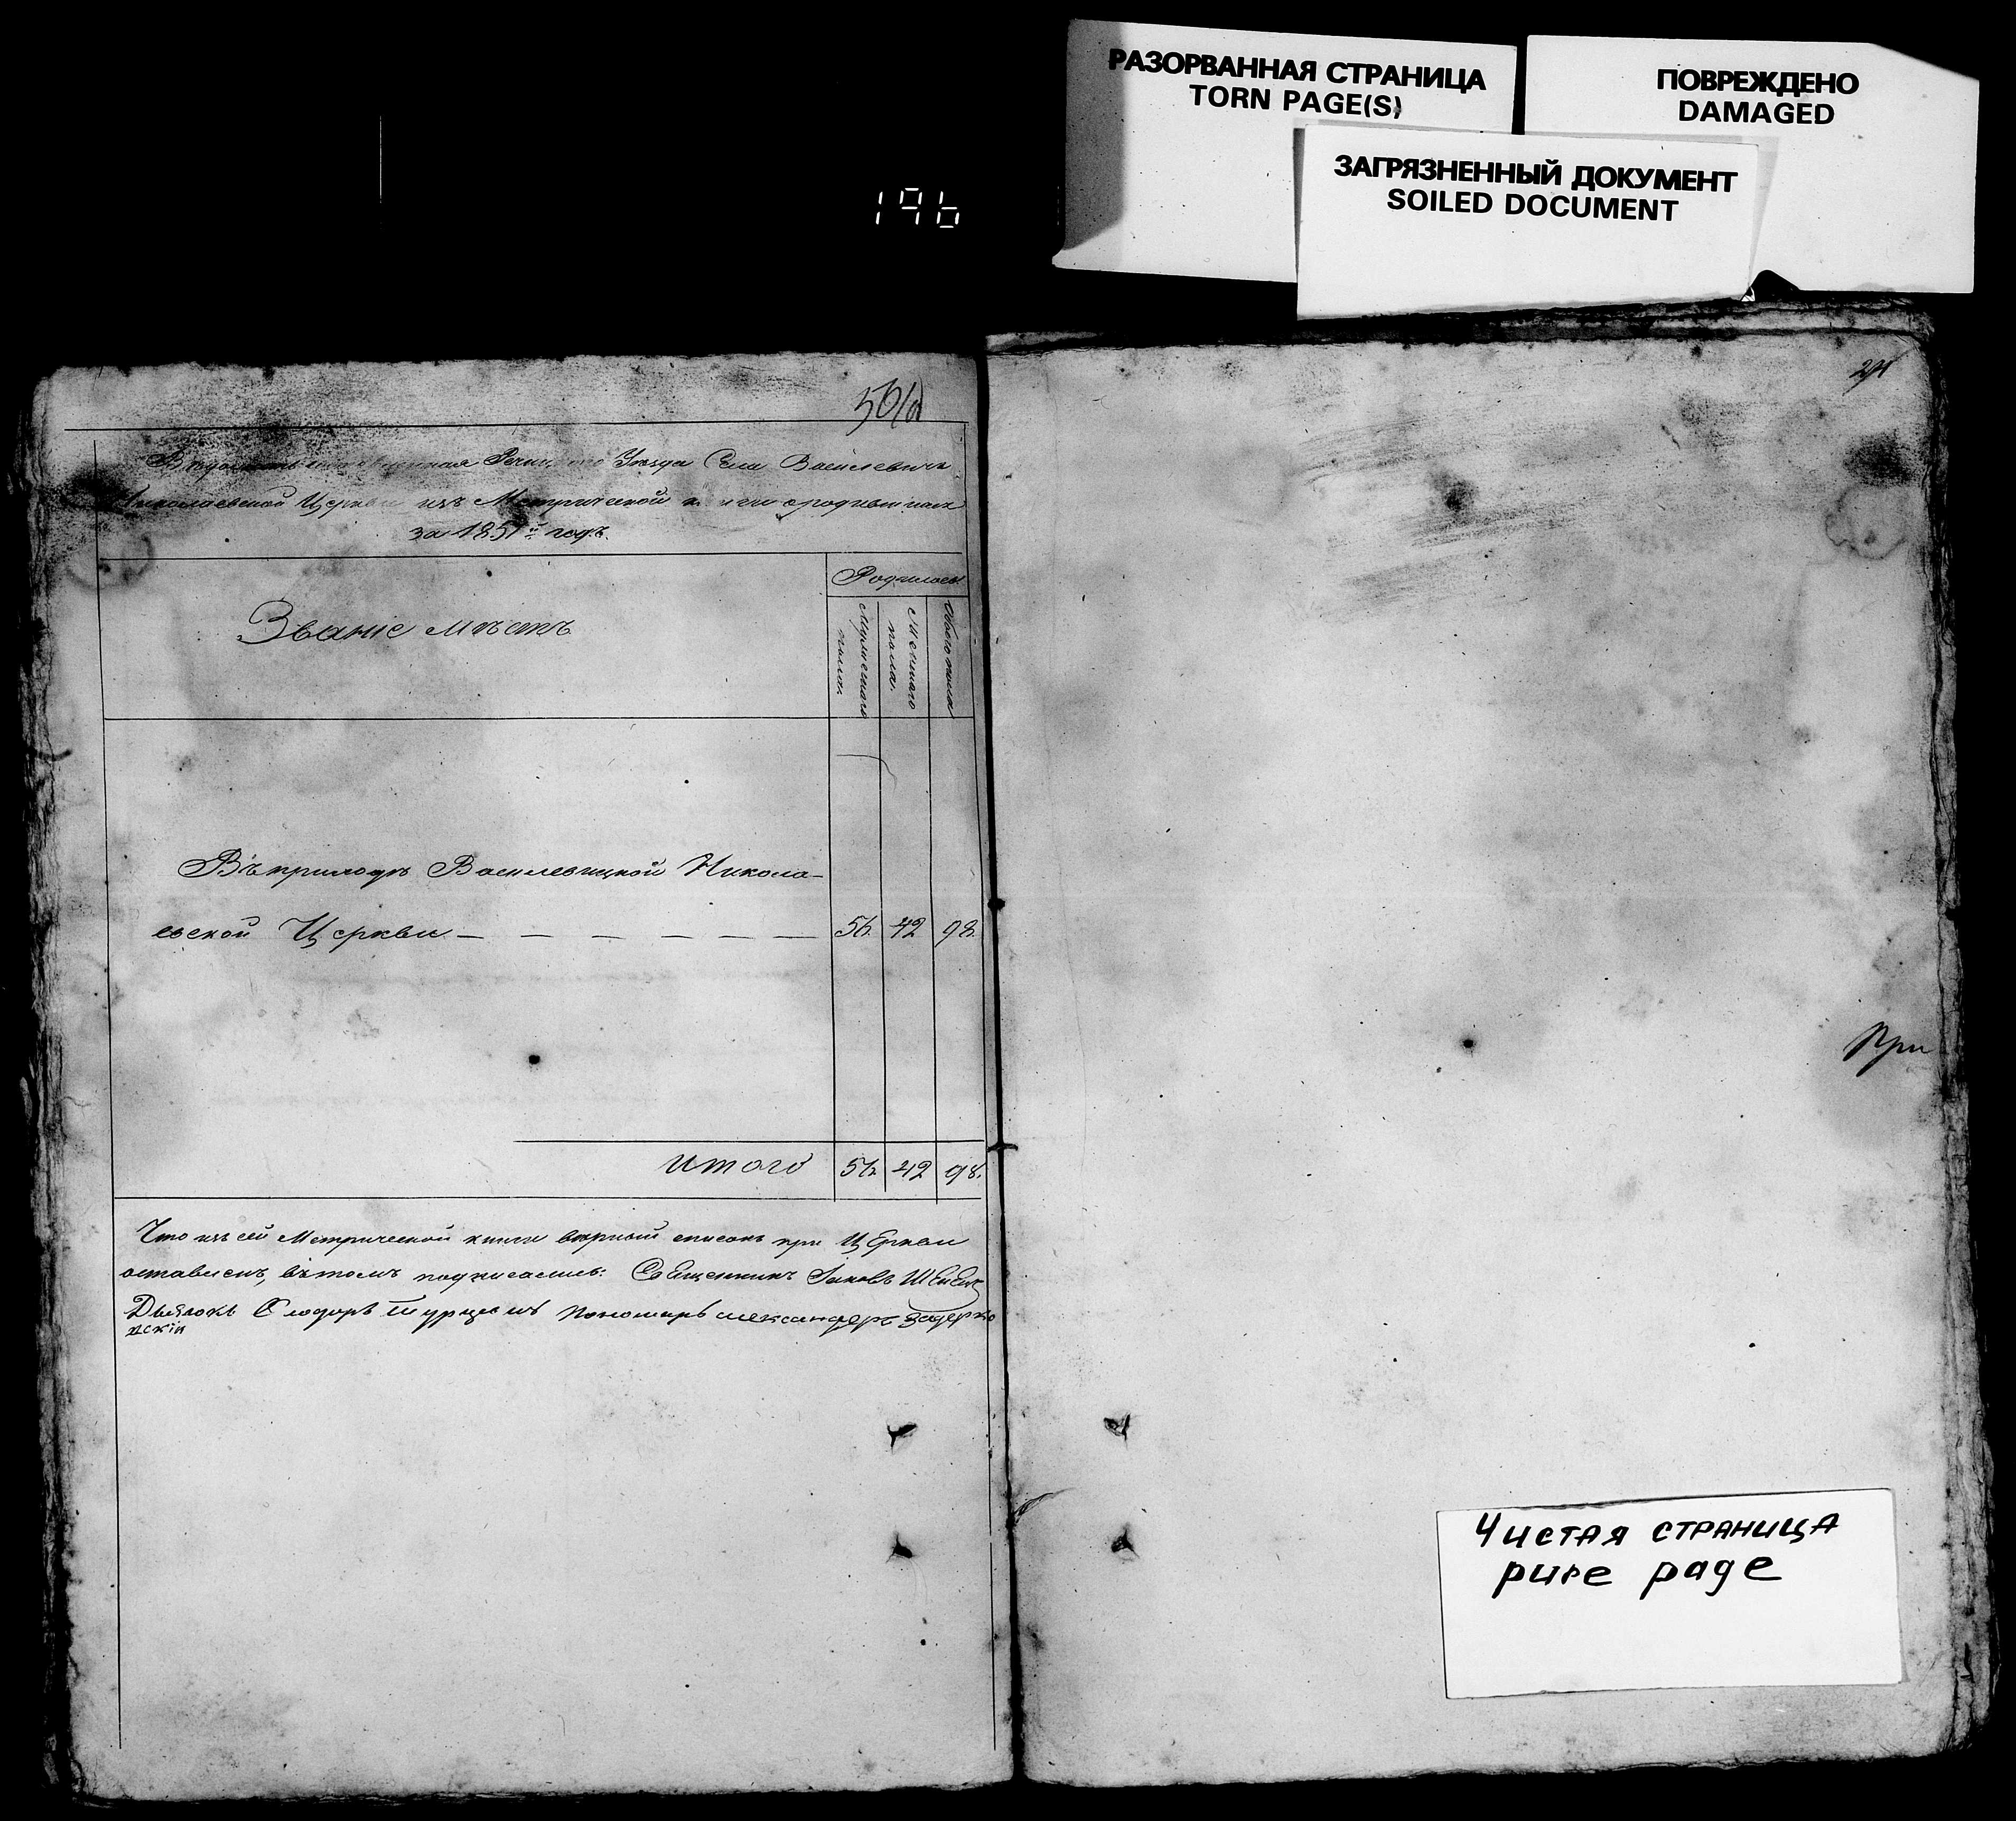 РАЗОРВАННАЯ СТРАНИЦА
TORN PAGE(S)
ПОВРЕЖДЕНО
DAMAGED
ЗАГРЯЗНЕННЫЙ ДОКУМЕНТ
SOILED DOCUMENT
196
Уѣзда Села Василевичъ
Николаевской Церкви изъ Метрической о родившихся
за 1851й годъ.
Званіе мѣстъ
Родилось
Мужескаго пола.
Женскаго пола.
Обоего пола
Въ приходѣ Василевицкой Никола-
евской Церкви — — — — — — 56. 42 98.
Итого 56. 42 98.
Что изъ сей Метрической книги вѣрный списокъ при Церкви
оставленъ, въ томъ подписались: Священникъ Іаковъ
Дьячокъ Пономарь александръ
При
Чистая страница
pure page